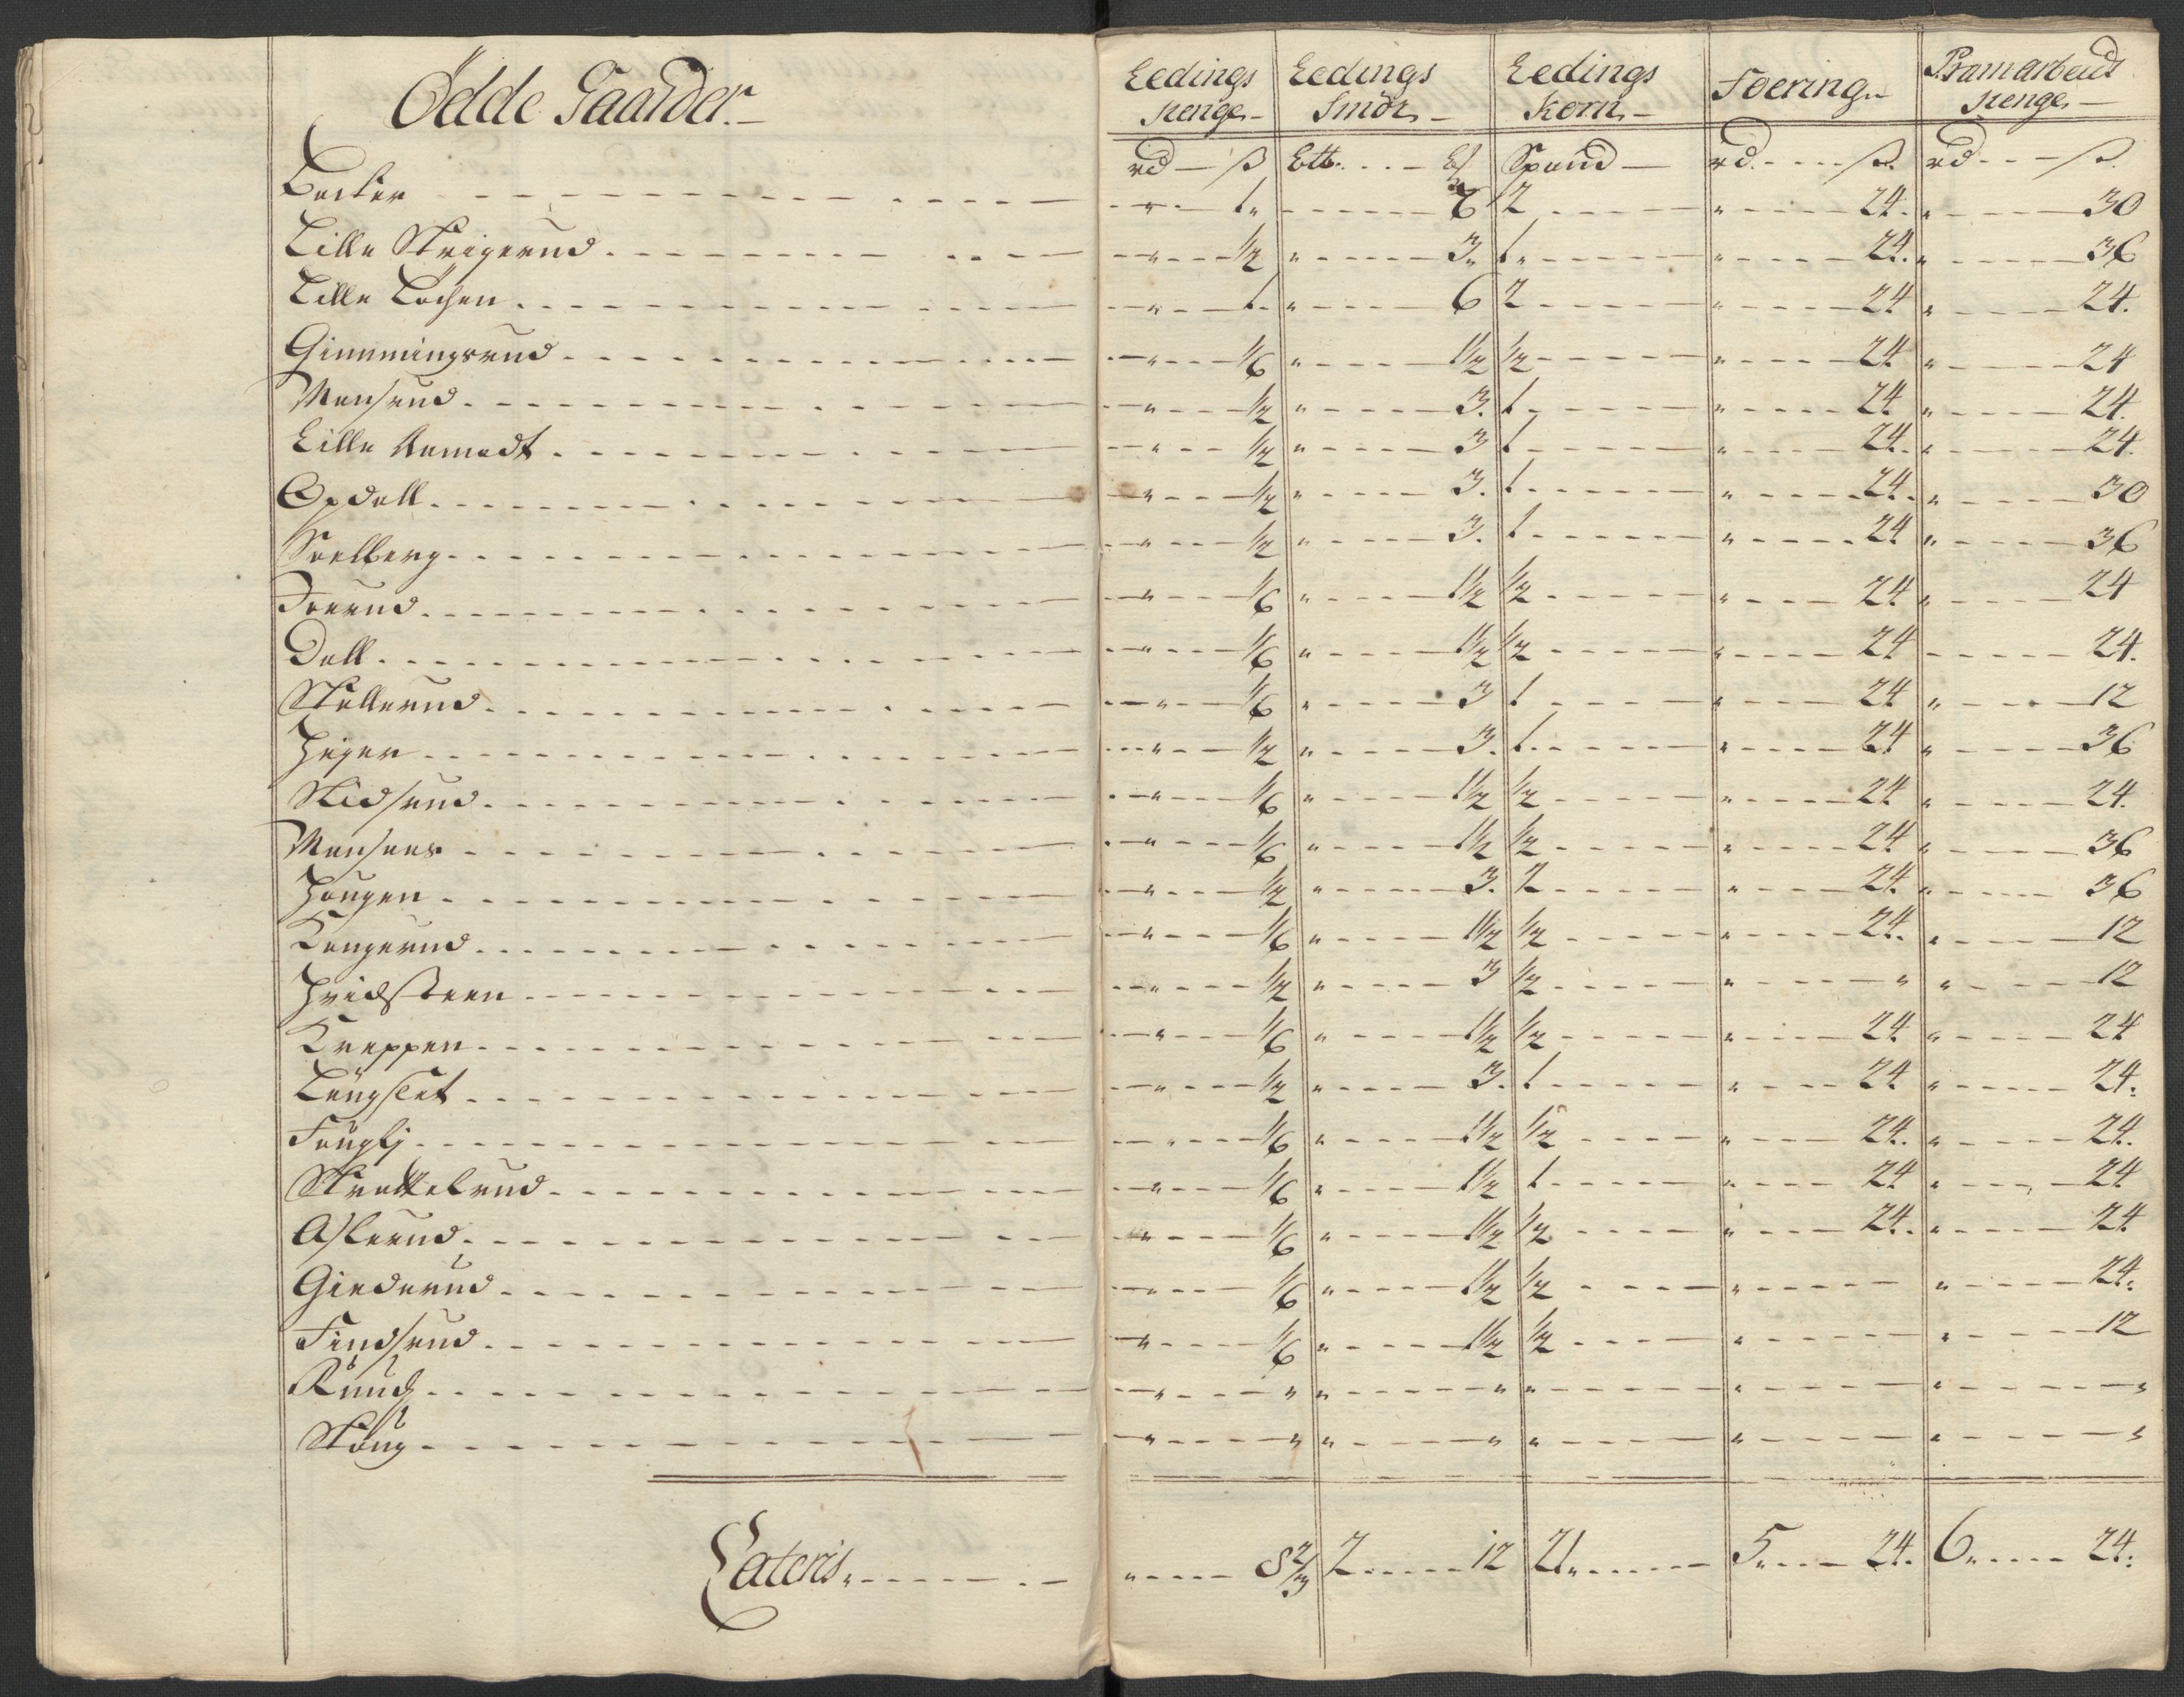 Ödde Gaarder.
Eedings Penge Eedings Smör Eedings Korn Foering Pramarbeids Penge
rd ß Ett. Spand rd ß rd ß
Backer " 1 " 6 2 " 24 " 30
Lille Skrigerud " 1/2 " 3 1 " 24 " 36
Lille Löchen " 1 " 6 2 " 24 " 24
Gimmingsrud " 1/6 " 1 1/2 1/2 " 24 " 24
Mensrud " 1/2 " 3 1 " 24 " 24
Lille Aamodt " 1/2 " 3 1 " 24 " 24
Opdall " 1/2 " 3 1 " 24 " 30
Soelberg " 1/2 " 3 1 " 24 " 36
" 1/6 " 1 1/2 1/2 " 24 " 24
Dall " 1/6 " 1 1/2 1/2 " 24 24
Skallerud " 1/6 " 3 1 " 24 " 12
" 1/2 " 3 1 " 24 " 36
Skidsrud " 1/6 " 1 1/2 1/2 " 24 " 24
" 1/6 " 1 1/2 1/2 " 24 " 36
Hougen " 1/2 " 3 2 " 24 " 36
Langerud " 1/6 " 1 1/2 1/2 " 24 " 12
Hvidsteen " 1/2 " 3 1/2 " " " 12
Kreppen " 1/6 " 1 1/2 1/2 " 24 " 24
Langslet " 1/2 " 3 1 " 24 " 24
Fouglj " 1/6 " 1 1/2 1/2 " 24 " 24
" 1/6 " 1 1/2 1 " 24 " 24
Aslerud " 1/6 " 1 1/2 1/2 " 24 " 24
Giederud " 1/6 " 1 1/2 1/2 " " 24
Findsrud " 1/6 " 1 1/2 1/2 " " 12
Ruud " " " " " " " "
Skoug " " " " " " " "
Lateris " 8 2/3 2 12 21 5 24 6 24